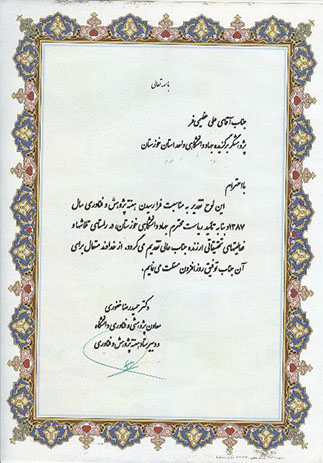 باسمه تعالی
جناب آقای علی عظیمی فر
پژوهشگر برگزیده جهاد دانشگاهی واحد استان خوزستان
با احترام
این لوح تقدیر به مناسبت فرا رسیدن هفته پژوهش و فناوری سال
۱۳۸۷ و بنا به تایید ریاست محترم جهاد دانشگاهی خوزستان در راستای تلاشها و
فعالیتهای تحقیقاتی ارزنده جناب عالی تقدیم می گردد. از خداوند متعال برای
آن جناب توفیق روز افزون مسئلت می نمایم.
دکتر حمیدرضا غفوری
معاون پژوهشی و فناوری دانشگاه
و دبیر ستاد هفته پژوهش و فناوری